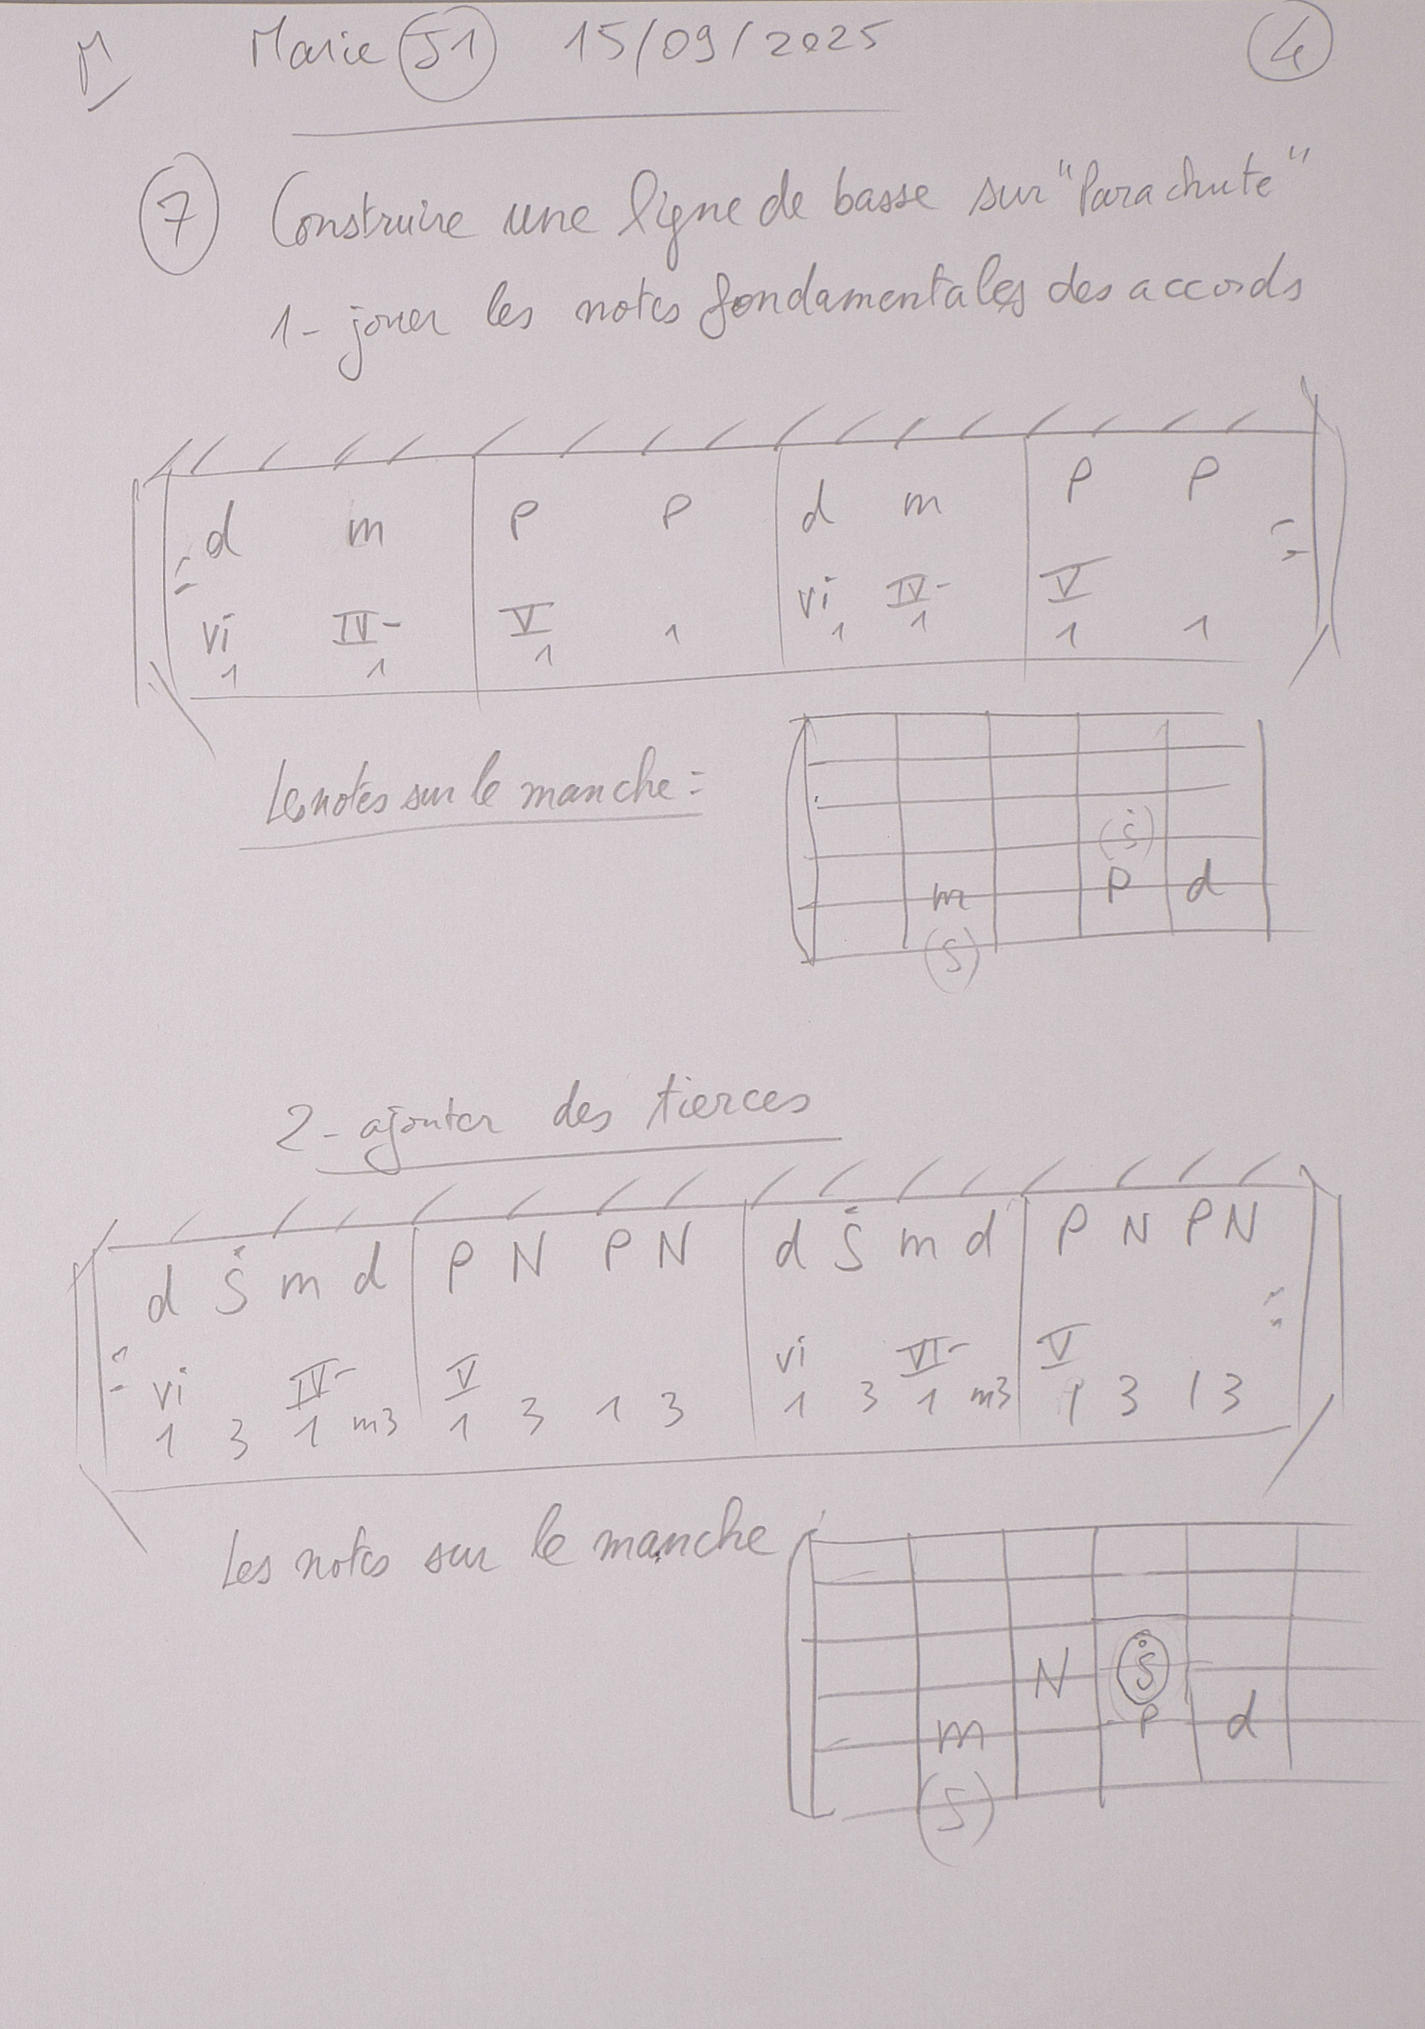 M Marie J1 15/09/2025 4
7 Construire une ligne de basse sur "Parachute"
1- jouer les notes fondamentales des accords
d m P P d m P P
vi IV- V vi IV- V
1 1 1 1 1 1 1 1
Les notes sur le manche:
(ṡ)
m P d
(S)
2- ajouter des tierces
d Ṡ m d P N P N d Ṡ m d P N P N
vi IV- V vi VI- V
1 3 1 m3 1 3 1 3 1 3 1 m3 1 3 1 3
Les notes sur le manche
N Ṡ
m P d
(S)